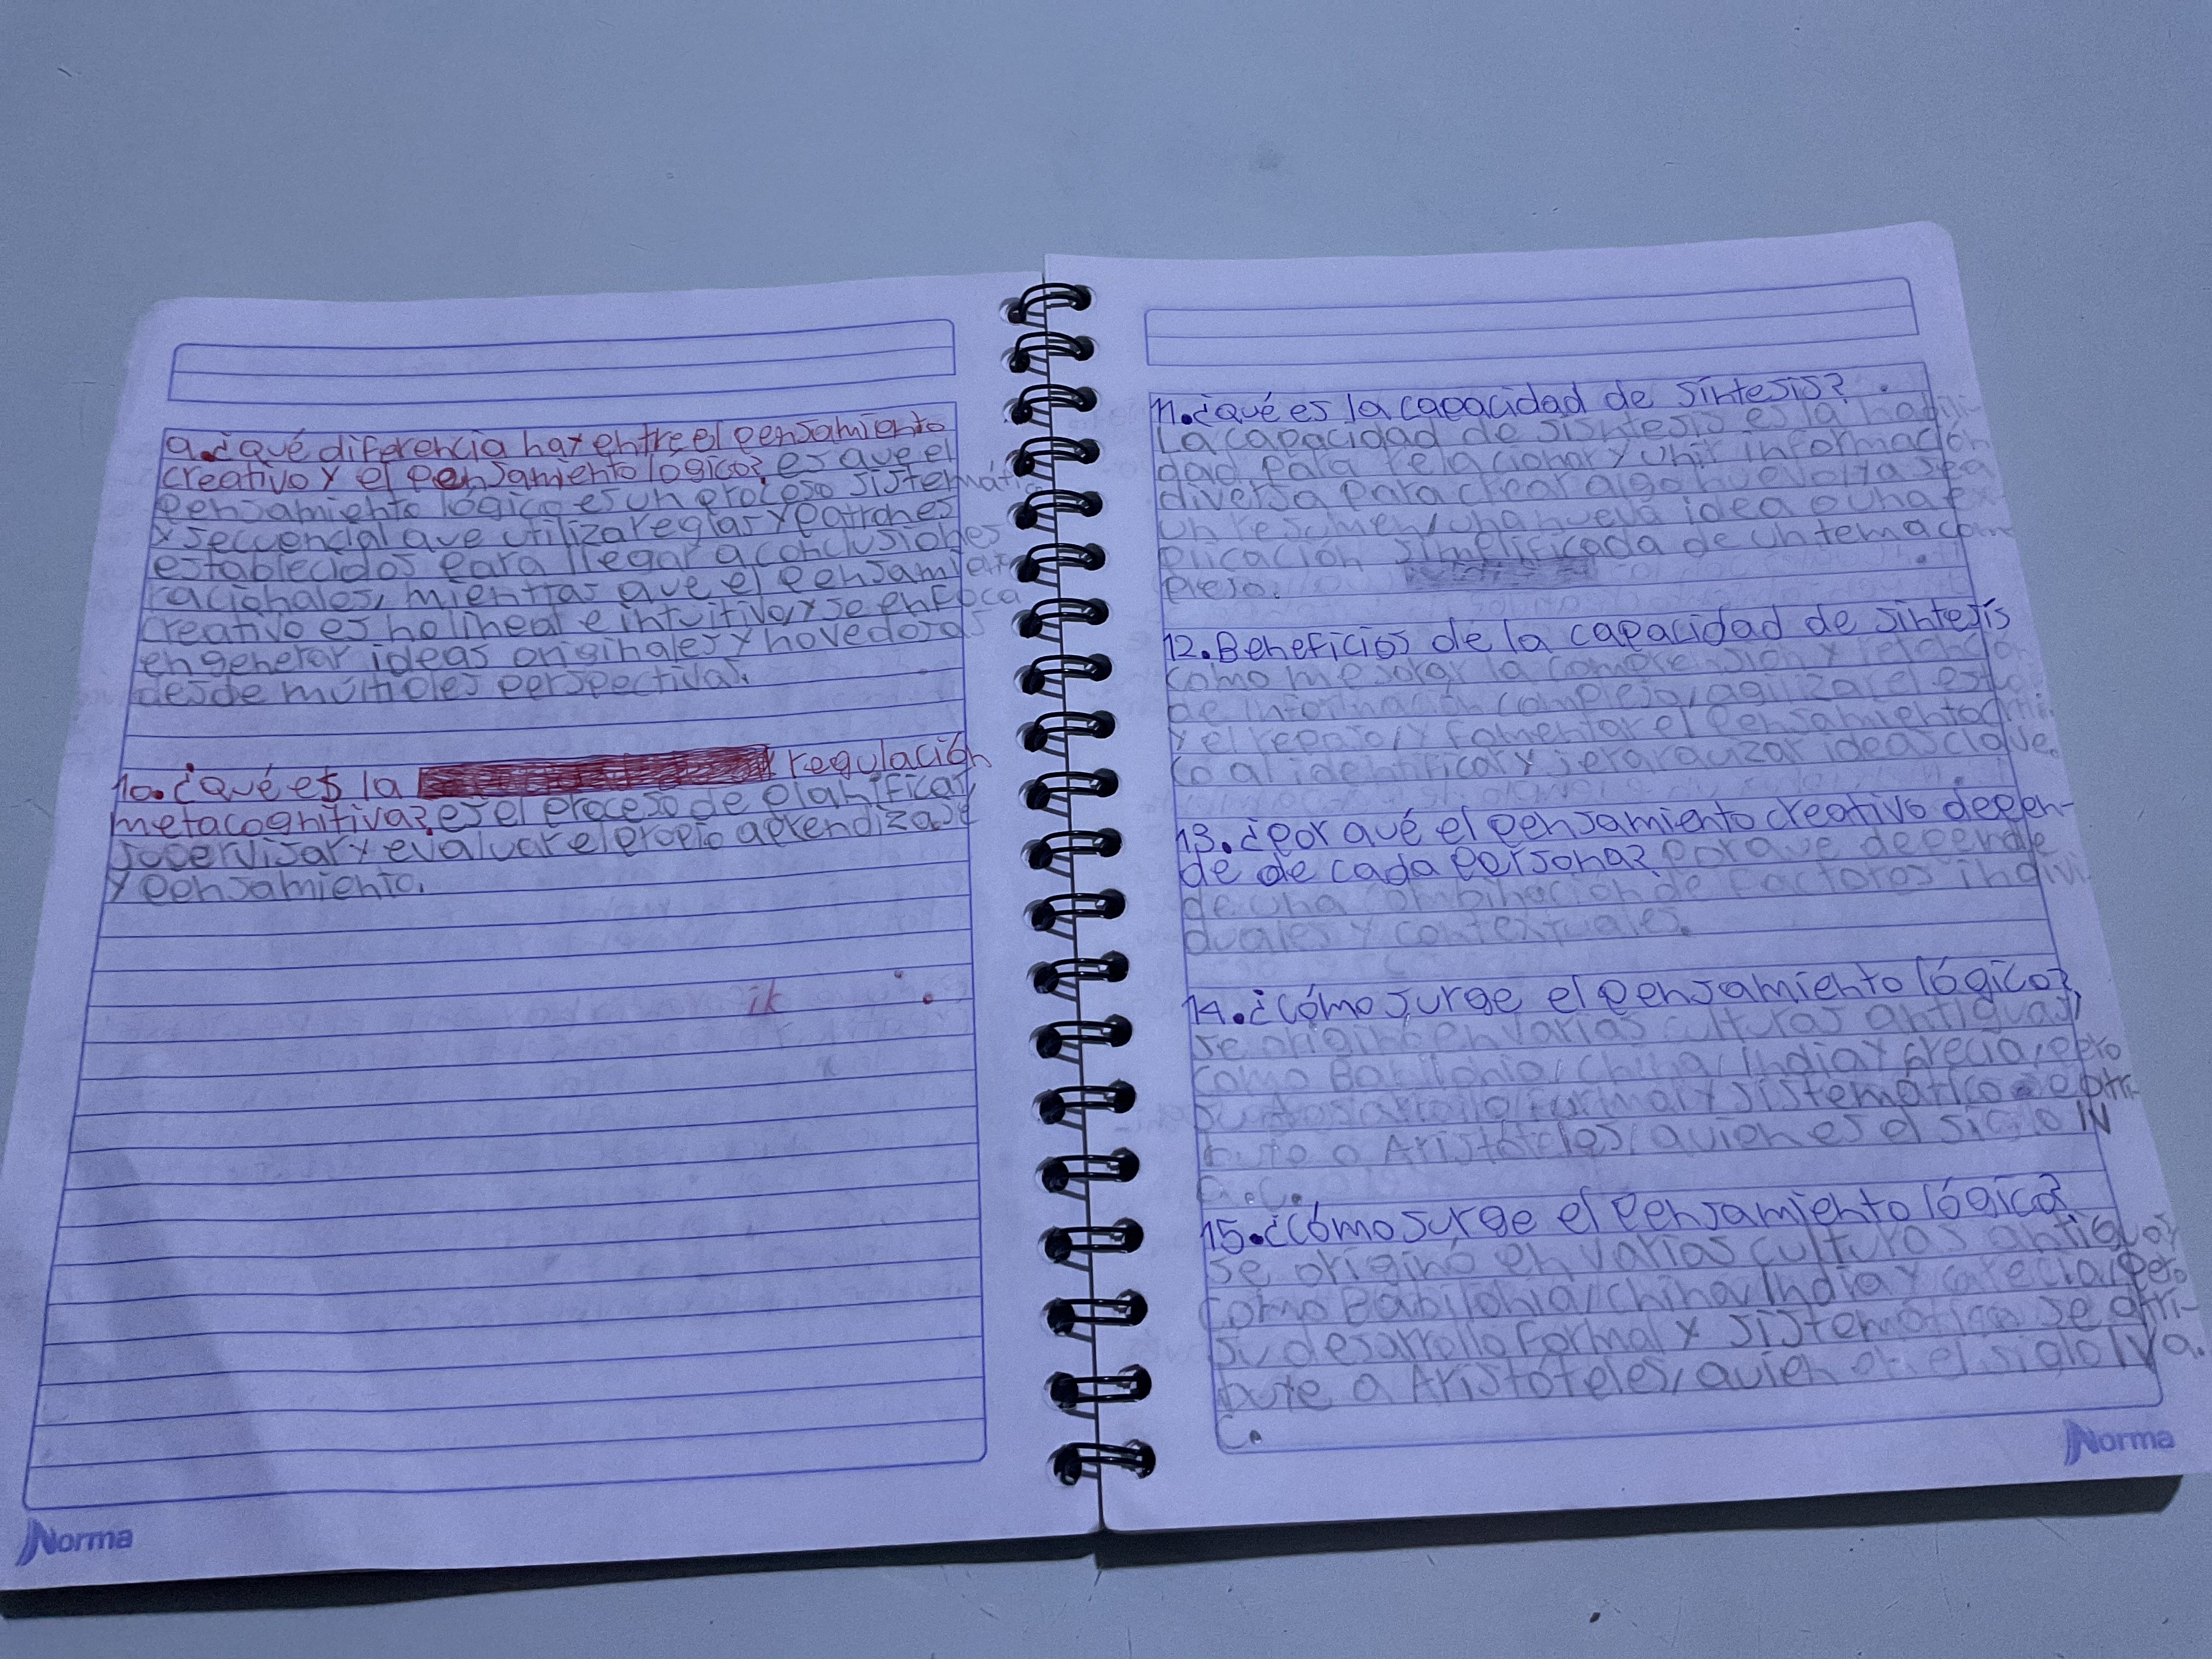 9. ¿qué diferencia hay entre el pensamiento
creativo y el pensamiento logico? es que el
pensamiento lógico es un proceso sistemático
y secuencial que utiliza reglas y patrones
establecidos para llegar a conclusiones
racionales, mientras que el pensamiento
creativo es no lineal e intuitivo, y se enfoca
en generar ideas originales y novedosas
desde múltiples perspectivas.
10. ¿qué es la regulación
metacognitiva? es el proceso de planificar
supervisar y evaluar el propio aprendizaje
y pensamiento.
ik
Norma
11. ¿qué es la capacidad de síntesis?
La capacidad de sisntesis es la habili-
dad para relacionar y unir información
diversa para crear algo nuevo, ya sea
un resumen, una nueva idea o una ex
plicación simplificada de un tema com
plejo.
12. Beneficios de la capacidad de síntesis
como mejorar la comprension y retención
de información compleja, agilizar el estu
y el repaso, y fomentar el pensamiento criti
co al identificar y jerarquizar ideas clave.
13. ¿por qué el pensamiento creativo depen-
de de cada persona? porque depende
de una combinación de factores indivi
duales y contextuales.
14. ¿Cómo surge el pensamiento lógico?
se origino en varias culturas antiguas,
como Babilonia, China, India y Grecia, pero
su desarrollo formal y sistemático se atri-
bute a Aristóteles, quien es el siglo IV
a.C.
15. ¿Cómo surge el pensamiento lógico?
se originó en varias culturas antiguas
como Babilonia, China, India y Grecia, pero
su desarrollo formal y sistemático se atri-
bute a Aristóteles, quien en el siglo IV a.
C.
Norma